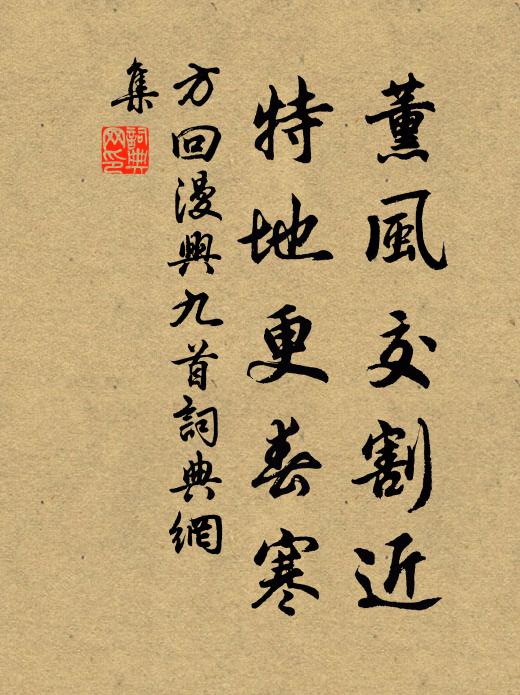 薰風交割近
特地更春寒
方回漫興九首詞典網
集
詞典
网印